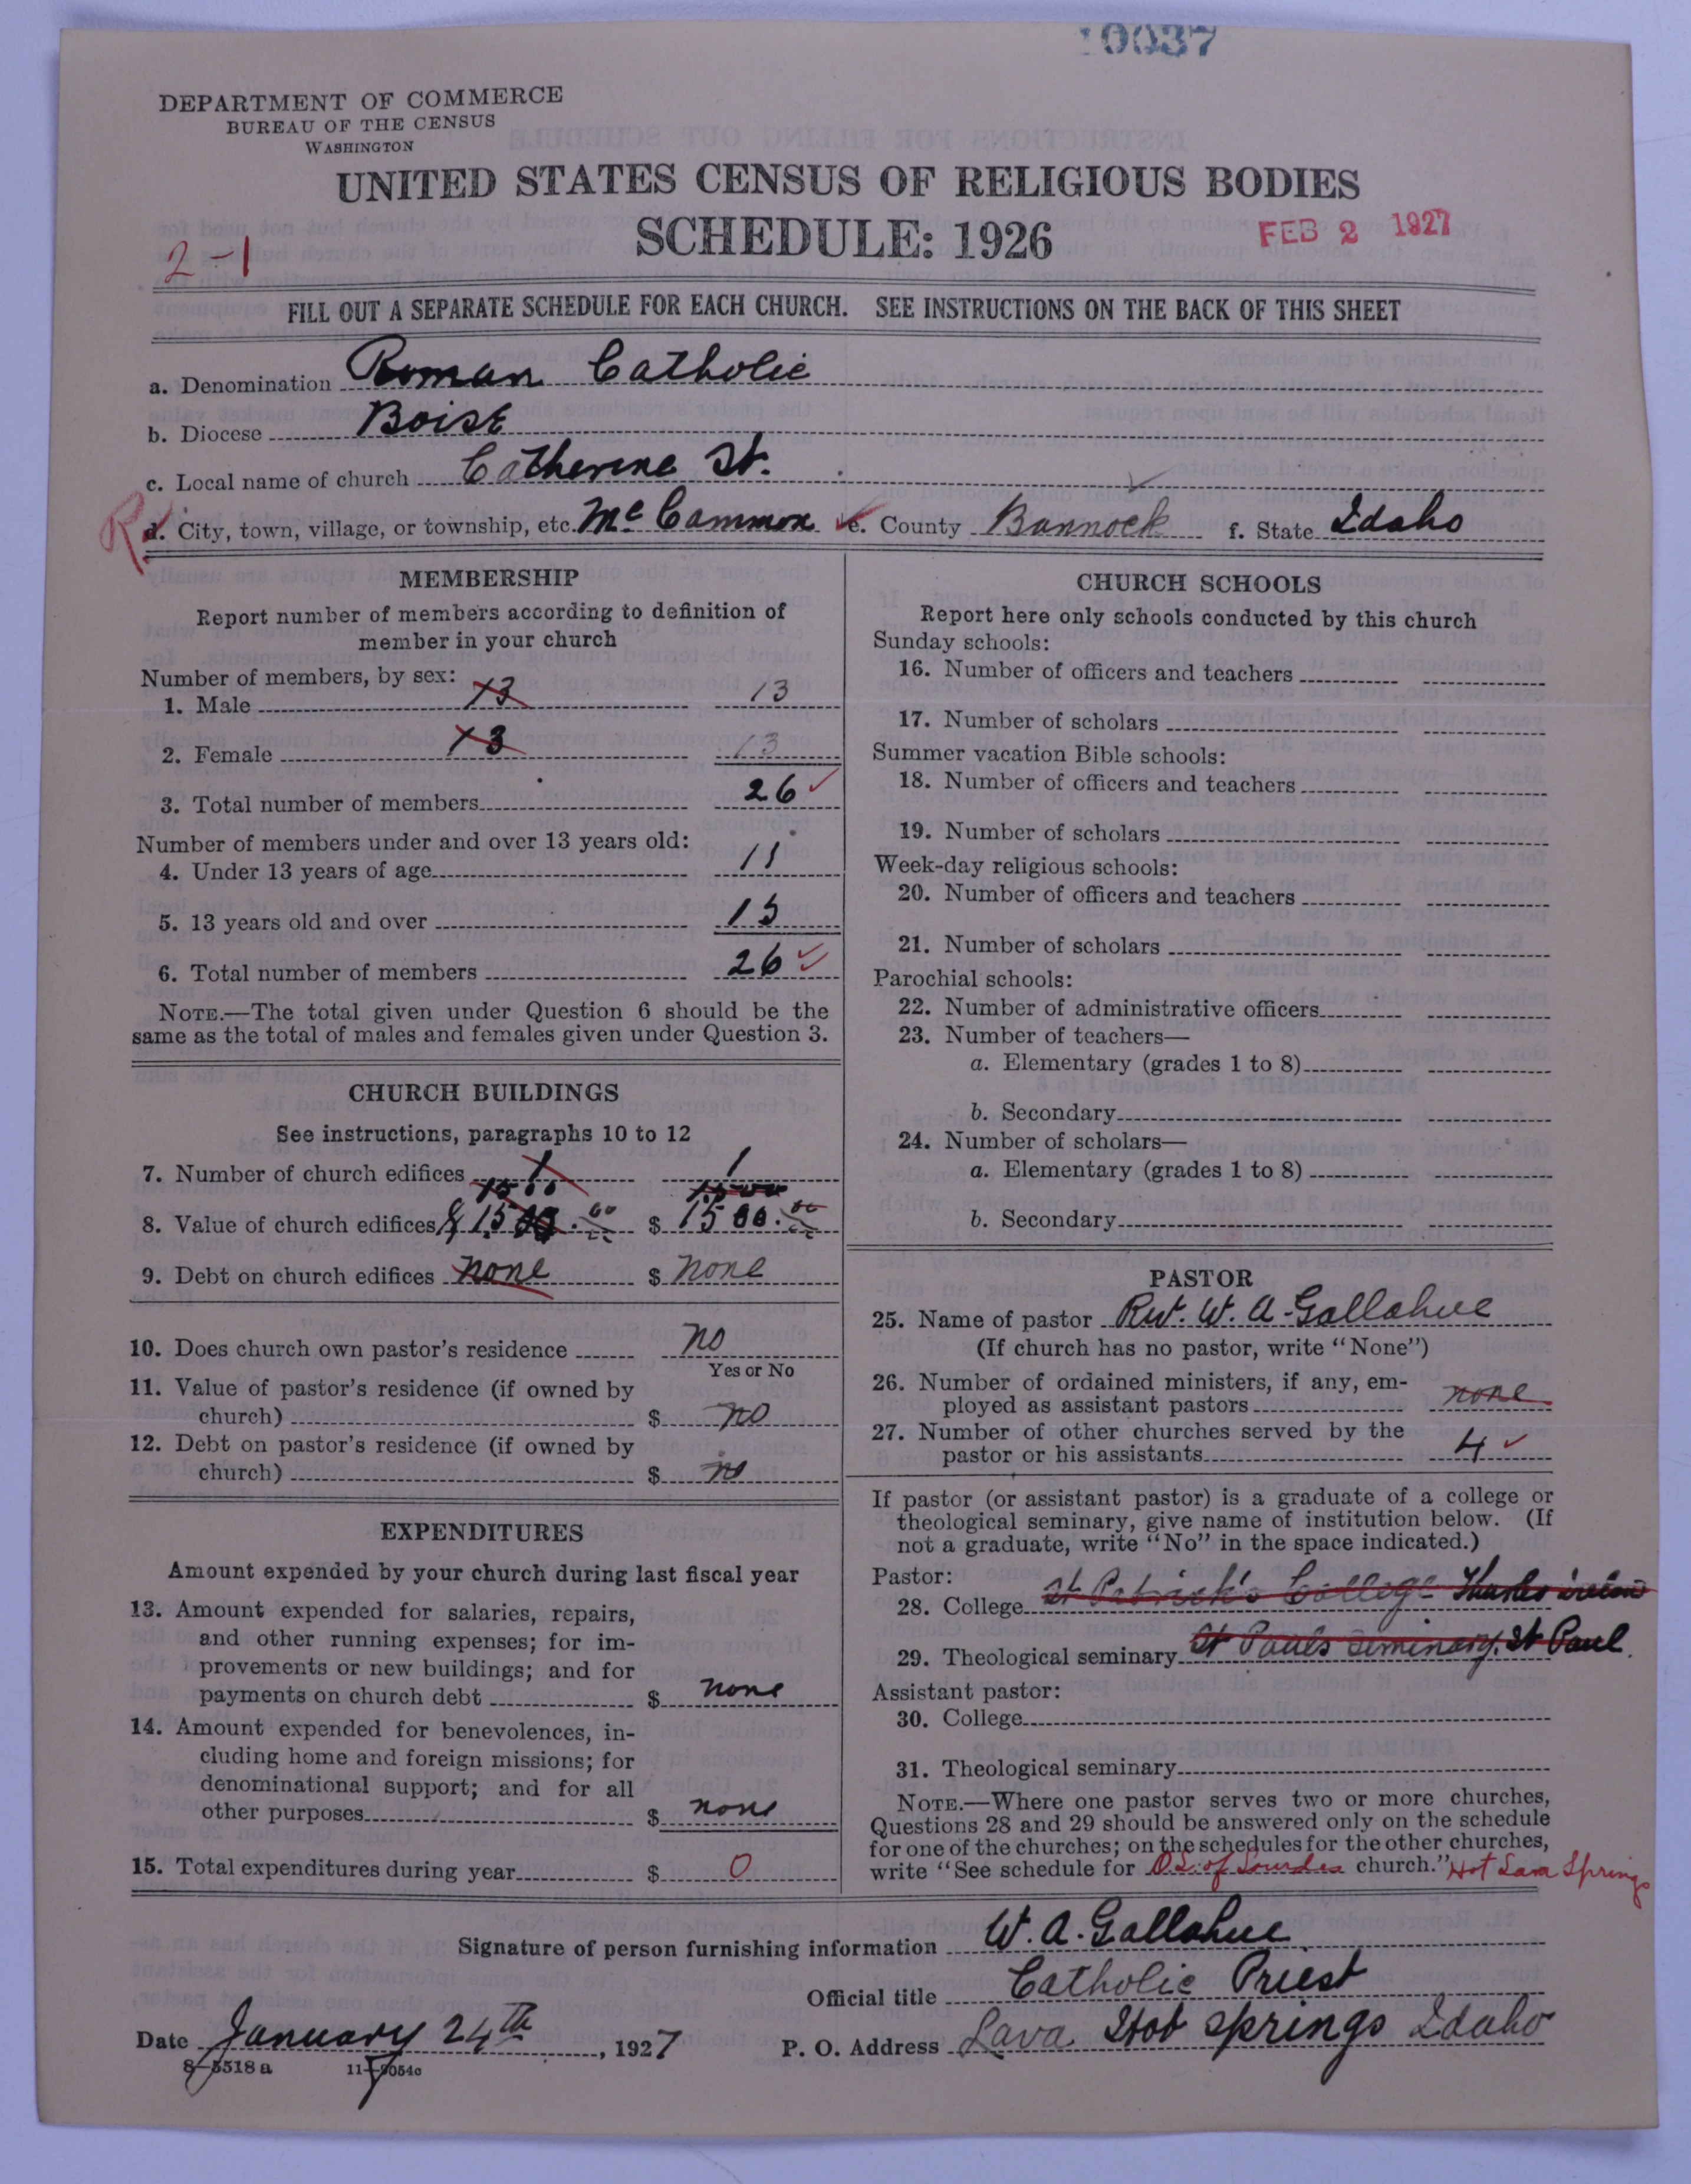 10037
DEPARTMENT OF COMMERCE
BUREAU OF THE CENSUS
WASHINGTON
UNITED STATES CENSUS OF RELIGIOUS BODIES
SCHEDULE: 1926
FEB 2 1927
2-1
FILL OUT A SEPARATE SCHEDULE FOR EACH CHURCH. SEE INSTRUCTIONS ON THE BACK OF THIS SHEET
a. Denomination Roman Catholic
b. Diocese Boise
c. Local name of church Catherine St.
R d. City, town, village, or township, etc. McCammon e. County Bannock f. State Idaho
MEMBERSHIP
Report number of members according to definition of
member in your church
Number of members, by sex:
1. Male 13 13
2. Female 13 13
3. Total number of members 26
Number of members under and over 13 years old:
4. Under 13 years of age 11
5. 13 years old and over 15
6. Total number of members 26
NOTE.—The total given under Question 6 should be the
same as the total of males and females given under Question 3.
CHURCH BUILDINGS
See instructions, paragraphs 10 to 12
7. Number of church edifices 1 1
1500 1500
8. Value of church edifices $1500.00 $ 1500.00
9. Debt on church edifices none $ none
10. Does church own pastor's residence no
Yes or No
11. Value of pastor's residence (if owned by
church) $ no
12. Debt on pastor's residence (if owned by
church) $ no
EXPENDITURES
Amount expended by your church during last fiscal year
13. Amount expended for salaries, repairs,
and other running expenses; for im-
provements or new buildings; and for
payments on church debt $ none
14. Amount expended for benevolences, in-
cluding home and foreign missions; for
denominational support; and for all
other purposes $ none
15. Total expenditures during year $ 0
CHURCH SCHOOLS
Report here only schools conducted by this church
Sunday schools:
16. Number of officers and teachers
17. Number of scholars
Summer vacation Bible schools:
18. Number of officers and teachers
19. Number of scholars
Week-day religious schools:
20. Number of officers and teachers
21. Number of scholars
Parochial schools:
22. Number of administrative officers
23. Number of teachers—
a. Elementary (grades 1 to 8)
b. Secondary
24. Number of scholars—
a. Elementary (grades 1 to 8)
b. Secondary
PASTOR
25. Name of pastor Rev. W. A. Gallahue
(If church has no pastor, write "None")
26. Number of ordained ministers, if any, em-
ployed as assistant pastors none
27. Number of other churches served by the
pastor or his assistants 4
If pastor (or assistant pastor) is a graduate of a college or
theological seminary, give name of institution below. (If
not a graduate, write "No" in the space indicated.)
Pastor:
28. College St Patrick's College Thurles Ireland
29. Theological seminary St Pauls Seminary. St Paul.
Assistant pastor:
30. College
31. Theological seminary
NOTE.—Where one pastor serves two or more churches,
Questions 28 and 29 should be answered only on the schedule
for one of the churches; on the schedules for the other churches,
write "See schedule for O.L. of Lourdes church." Hot Lava Springs
Signature of person furnishing information W. A. Gallahue
Official title Catholic Priest
Date January 24th, 1927 P. O. Address Lava Hot Springs Idaho
8-5518 a 11-9054c